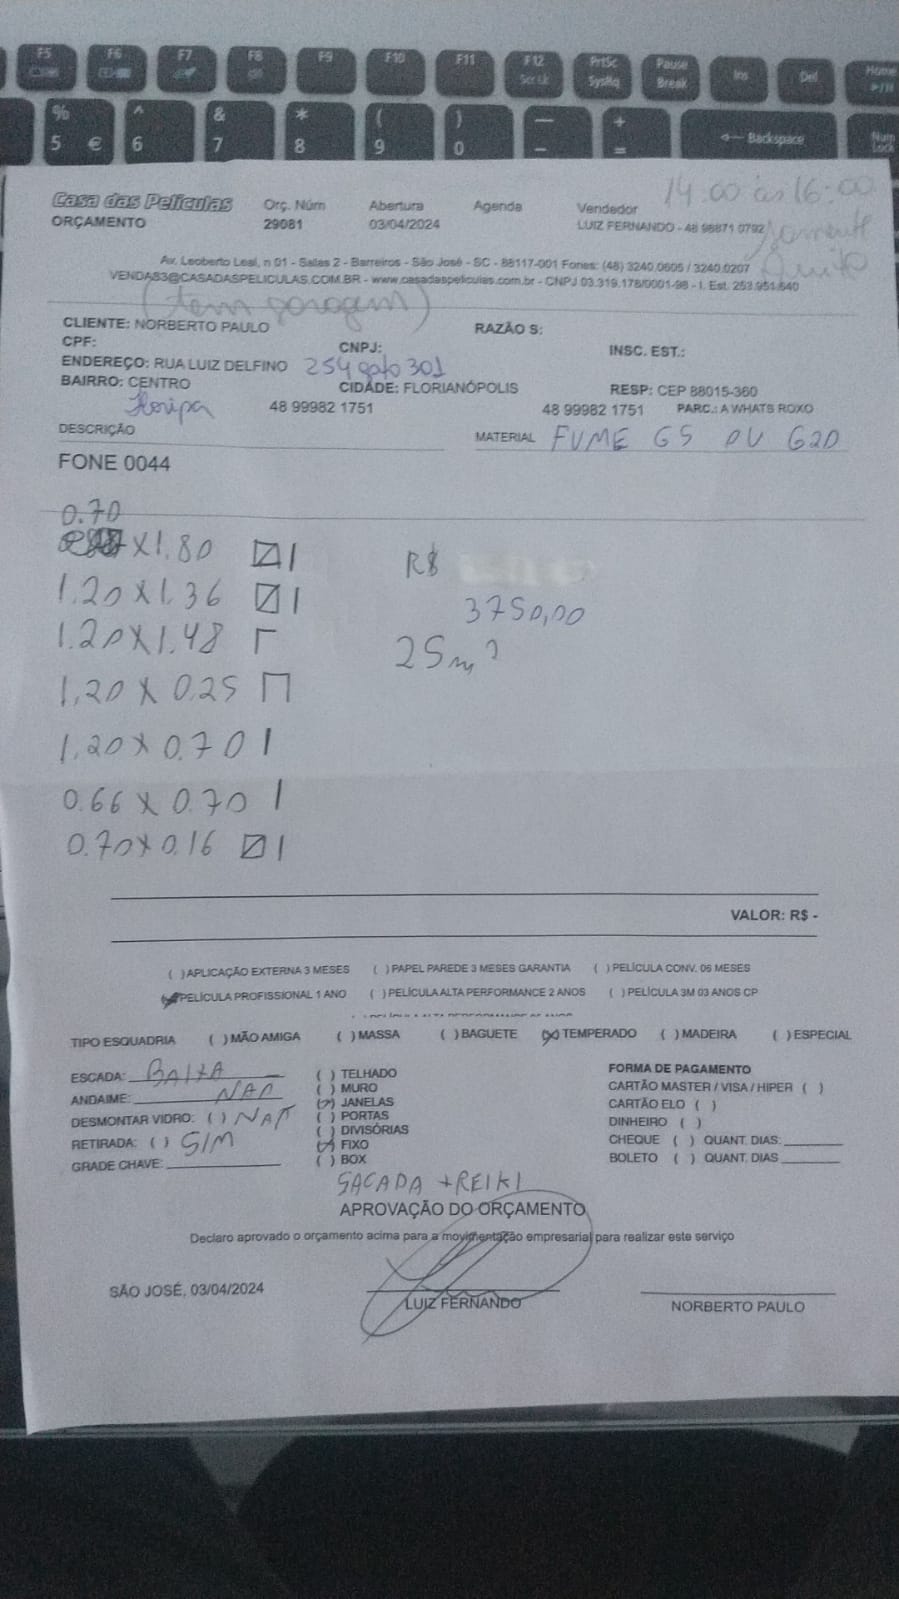 F5 F6 F7 F8 F9 F10 F11 F12 PrtSc Pause Ins Del Home
Scr Lk SysRq Break
% ^ & * ( ) — +
5 € 6 7 8 9 0 - = Backspace Num Lock
14:00 às 16:00
Casa das Películas Orç. Núm Abertura Agenda Vendedor
ORÇAMENTO 29081 03/04/2024 LUIZ FERNANDO - 48 98871 0792
somente
Av. Leoberto Leal, n 91 - Salas 2 - Barreiros - São José - SC - 88117-001 Fones: (48) 3240.0605 / 3240.0207
VENDAS3@CASADASPELICULAS.COM.BR - www.casadaspeliculas.com.br - CNPJ 03.319.178/0001-98 - I. Est. 253.951.640
(tem garagem)
CLIENTE: NORBERTO PAULO RAZÃO S:
CPF: CNPJ: INSC. EST.:
ENDEREÇO: RUA LUIZ DELFINO 254 apto 301
BAIRRO: CENTRO CIDADE: FLORIANÓPOLIS RESP: CEP 88015-360
Floripa 48 99982 1751 48 99982 1751 PARC.: A WHATS ROXO
DESCRIÇÃO MATERIAL FUME G5 OU G20
FONE 0044
0.70
x 1.80 R$
1.20 x 1.36 3750,00
1.20 x 1.48 25m²
1,20 x 0.25
1,20 x 0.70
0.66 x 0.70
0.70 x 0.16
VALOR: R$ -
( ) APLICAÇÃO EXTERNA 3 MESES ( ) PAPEL PAREDE 3 MESES GARANTIA ( ) PELÍCULA CONV. 06 MESES
(x) PELÍCULA PROFISSIONAL 1 ANO ( ) PELÍCULA ALTA PERFORMANCE 2 ANOS ( ) PELÍCULA 3M 03 ANOS CP
TIPO ESQUADRIA ( ) MÃO AMIGA ( ) MASSA ( ) BAGUETE (x) TEMPERADO ( ) MADEIRA ( ) ESPECIAL
ESCADA: BAIXA ( ) TELHADO FORMA DE PAGAMENTO
ANDAIME: NAO ( ) MURO CARTÃO MASTER / VISA / HIPER ( )
(x) JANELAS CARTÃO ELO ( )
DESMONTAR VIDRO: ( ) NAO ( ) PORTAS DINHEIRO ( )
RETIRADA: ( ) SIM ( ) DIVISÓRIAS CHEQUE ( ) QUANT. DIAS:
(x) FIXO
GRADE CHAVE: ( ) BOX BOLETO ( ) QUANT. DIAS
SACADA + REIKI
APROVAÇÃO DO ORÇAMENTO
Declaro aprovado o orçamento acima para a movimentação empresarial para realizar este serviço
SÃO JOSÉ, 03/04/2024 LUIZ FERNANDO NORBERTO PAULO